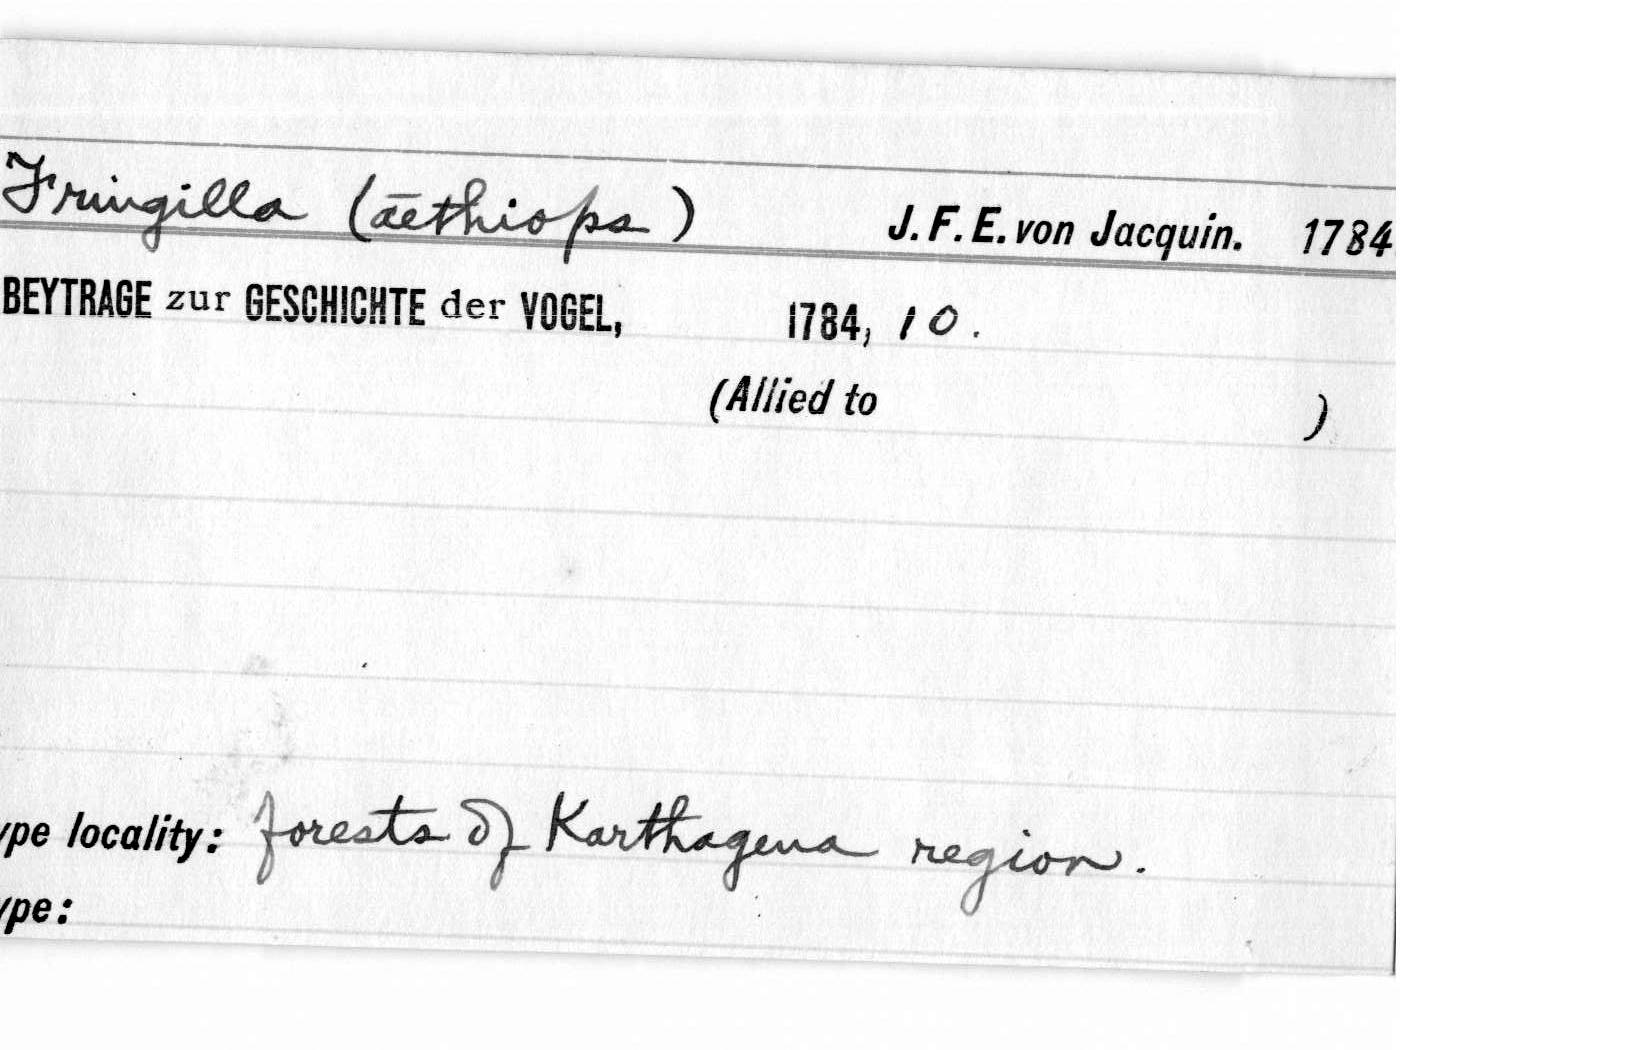 Fringilla (āethiops) J. F. E. von Jacquin. 1784
BEYTRAGE zur GESCHICHTE der VOGEL, 1784, 10.
(Allied to )
ype locality: forests of Karthagena region.
ype: